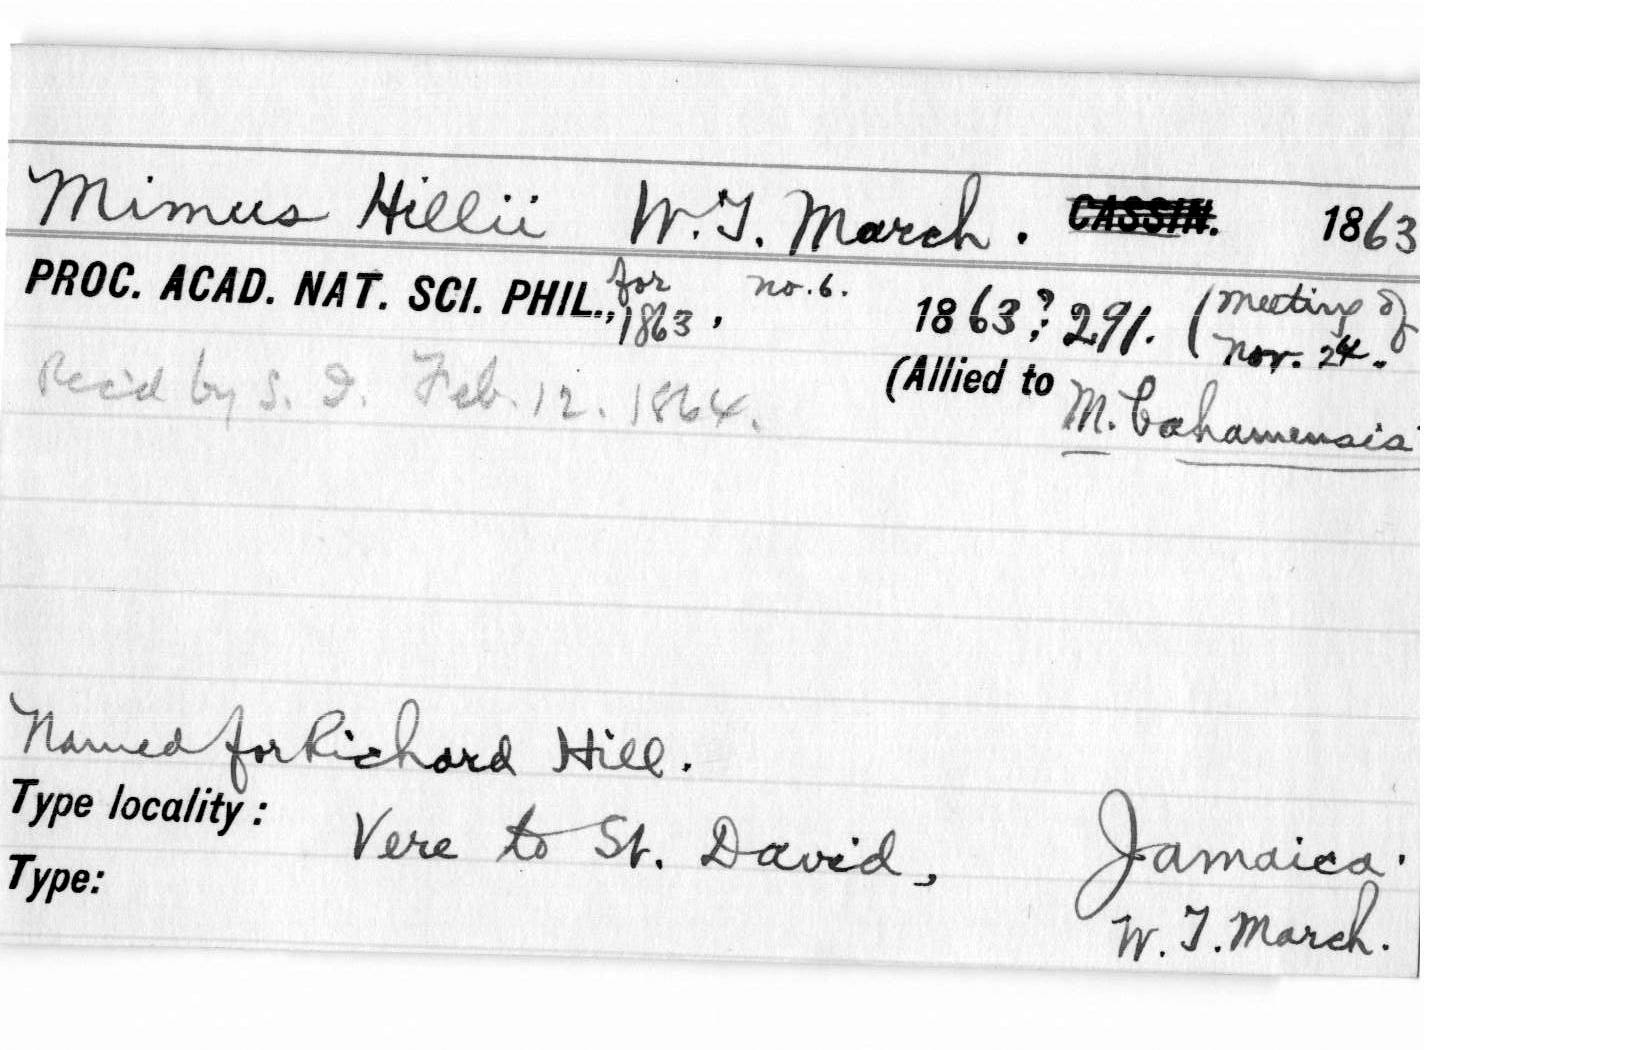 Mimus Hillii W.T. March. CASSIN. 1863
PROC. ACAD. NAT. SCI. PHIL., for 1863, no. 6. 1863?: 291. (Meeting of Nov. 24.
Rec'd by S. I. Feb. 12. 1864. (Allied to M. bahamensis
Named for Richard Hill.
Type locality: Vere to St. David, Jamaica.
Type: W. T. March.